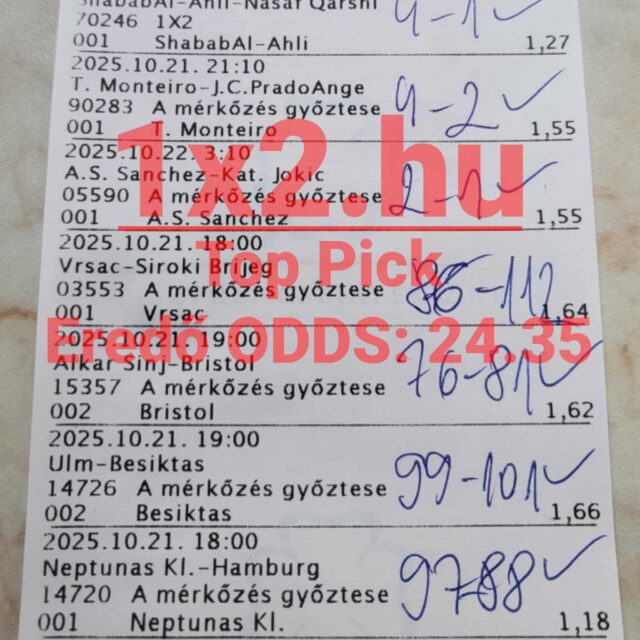 ShababAl-Ahli-Nasaf Qarshi
70246 1X2
001 ShababAl-Ahli 1,27
4-1
2025.10.21. 21:10
T. Monteiro-J.C.PradoAnge
90283 A mérkőzés győztese
001 T. Monteiro 1,55
4-2
2025.10.22. 3:10
A.S. Sanchez-Kat. Jokic
05590 A mérkőzés győztese
001 A.S. Sanchez 1,55
2-1
2025.10.21. 18:00
Vrsac-Siroki Brijeg
03553 A mérkőzés győztese
001 Vrsac 1,64
86-112
2025.10.21. 19:00
Alkar Sinj-Bristol
15357 A mérkőzés győztese
002 Bristol 1,62
76-81
2025.10.21. 19:00
Ulm-Besiktas
14726 A mérkőzés győztese
002 Besiktas 1,66
99-101
2025.10.21. 18:00
Neptunas Kl.-Hamburg
14720 A mérkőzés győztese
001 Neptunas Kl. 1,18
97-88
1x2.hu
Top Pick
Eredő ODDS: 24.35